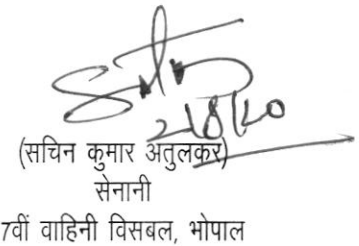 2/8/20
(सचिन कुमार अतुलकर)
सेनानी
7वीं वाहिनी विसबल, भोपाल